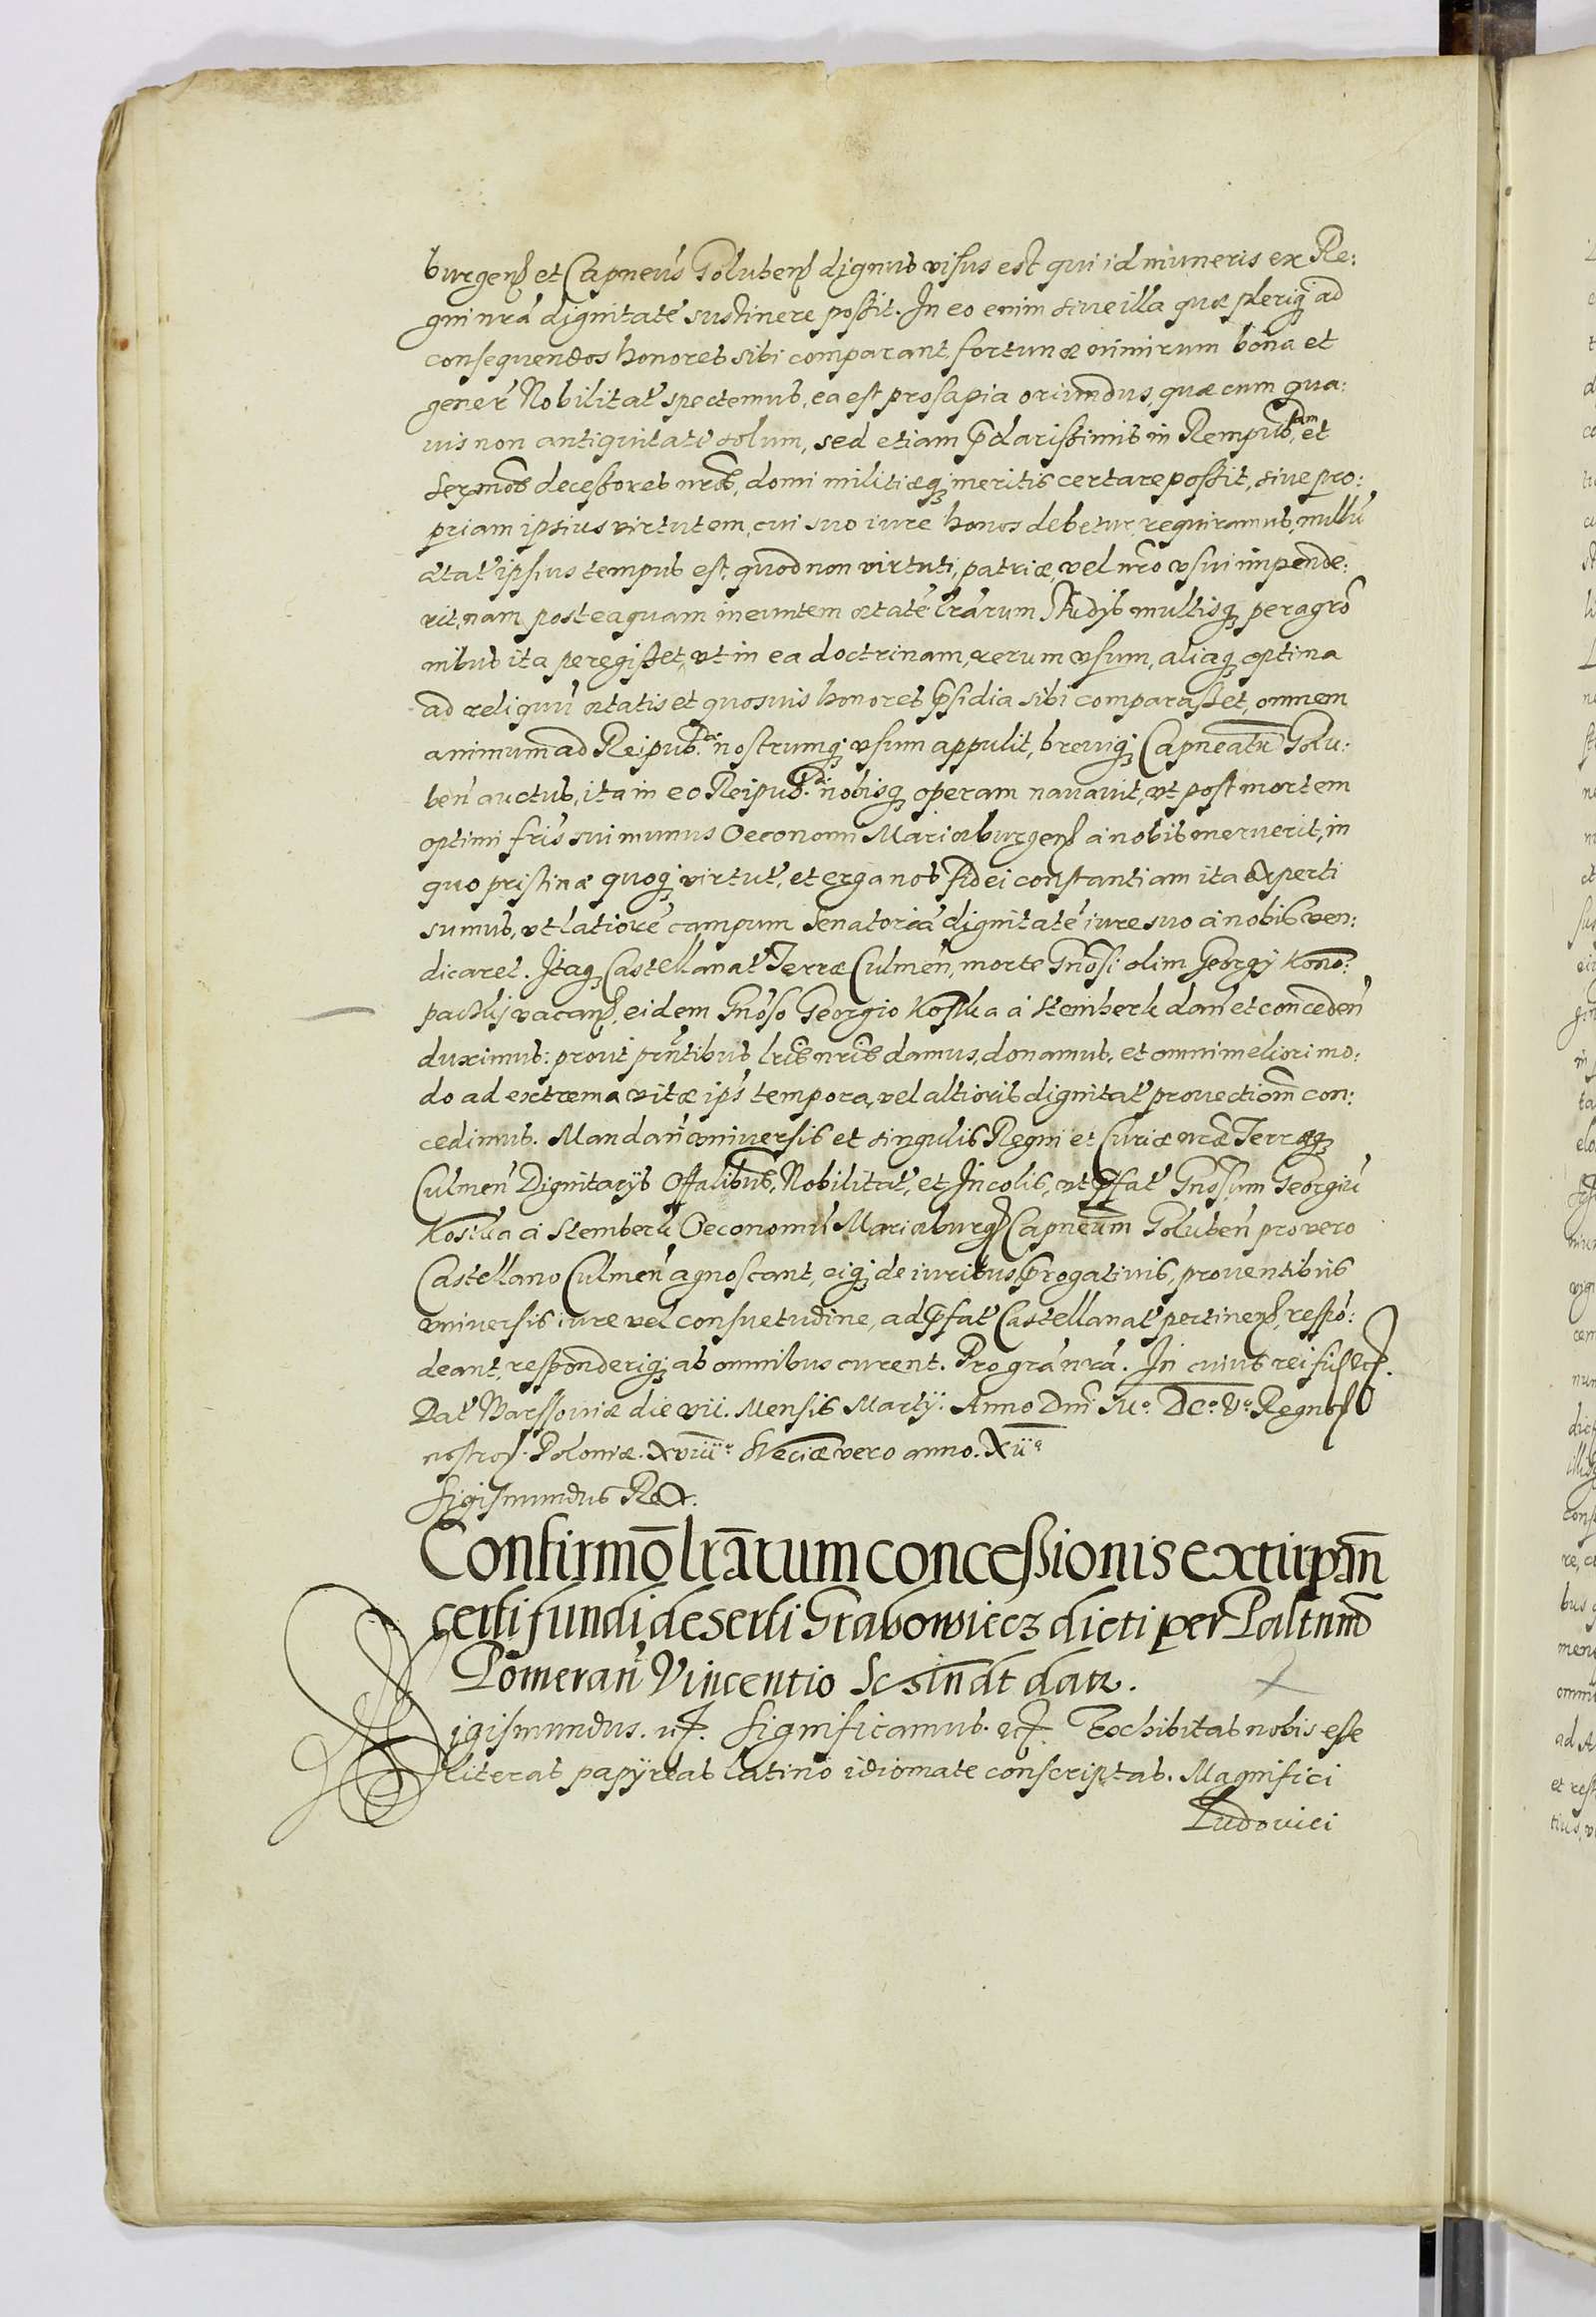 burgenß et Capneus Golubenß dignus visus est qui id muneris ex Re:
gni nrã dignitate sustinere possit. In eo enim siue illa quæ pleriq; ad
consequendos honores sibi comparant, fortunæ nimirum bona et
gener Nobilitat spectemus, ea est prosapia oriundus, quæ cum qua:
uis non antiquitate solum, sed etiam pclarissimis in Rempub.cam et
Sermos decessores nros, domi militiæq; meritis certare possit, siue pro:
priam ipsius virtutem, cui suo iure honos debetur, requiramus, nullu
ætat ipsius tempus est, quod non virtuti, patriæ, vel nro vsui impende:
rit, nam posteaquam ineuntem ætate lrarum studys multisq; peragro
nibus ita peregisset, vt in ea doctrinam, rerum vsum, aliaq; optima
ad reliquu ætatis et quosuis honores psidia sibi comparasset, omnem
animum ad Reipub.cæ nostrumq; vsum appulit, breuiq; Capneatu Golu:
ben auctus, ita in eo Reipub. nobisq; operam nauauit, vt post mortem
optimi fris sui munus Oeconomi Mariæburgenß a nobis meruerit, in
quo pristinæ quoq; virtut, et erga nos fidei constantiam ita experti
sumus, vt latiore campum Senatoria dignitate iure suo a nobis ven:
dicaret. Itaq; Castellanat Terræ Culmen, morte Gnosi olim Georgy Kono:
packy vacanß, eidem Gnoso Georgio Kostka a Stemberk dan et conceden
duximus: prout pntibus lris nris damus, donamus, et omni meliori mo:
do ad extrema vitæ ips tempora, vel altioris dignitat prouectiom con:
cedimus. Mandan vniuersis et singulis Regni et Curiæ nræ Terræq;
Culmen Dignitarys Offalibus, Nobilitat, et Incolis, vt pfat Gnosum Georgiu
Kostka a Stemberk Oeconomu Mariæburgß Capneum Goluben pro vero
Castellano Culmen agnoscant, eiq; de iuribus, progatiuis, prouentibus
vniuersis iure vel consuetudine, ad pfat Castellanat pertinenß, respo:
deant, responderiq; ab omnibus curent. Pro gra nra. In cuius rei fid etc.
Dat Warssouiæ die vii. Mensis Marty. Anno Dni Mo. DCo. Vo. Regnor
nostror. Poloniæ. xviiio Sueciæ vero anno. Xiio
Sigismundus Rex.
Confirmo lrarum concessionis extirpan
certi fundi deserti Grabowiecz dicti per Paltinm
Pomeran Vincentio Scsindt datr.
Sigismundus. etc. Significamus. etc. Exhibitas nobis esse
literas papyreas latino idiomate conscriptas. Magnifici
Ludouici